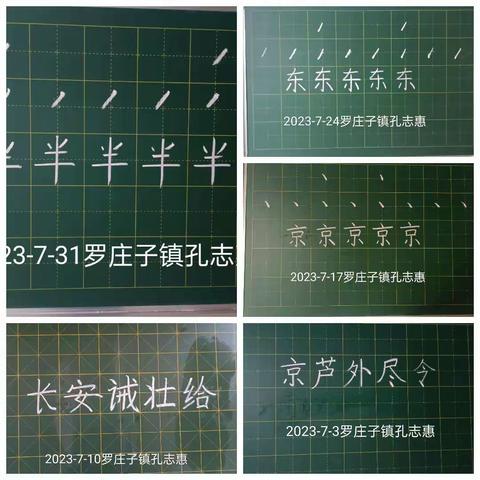 半半半半
23-7-31罗庄子镇孔志
东东东东东
2023-7-24罗庄子镇孔志惠
京京京京京
2023-7-17罗庄子镇孔志惠
长安诫壮给
2023-7-10罗庄子镇孔志惠
京芦外尽令
2023-7-3罗庄子镇孔志惠